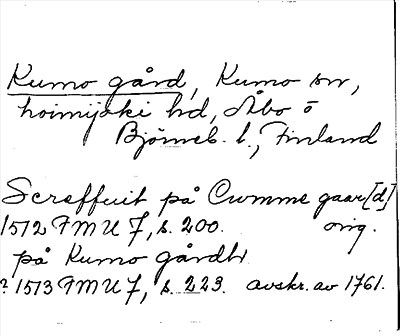 Kumo gård, Kumo sn,
hd, Åbo o
Björneb. l., Finland
Screffuit på Cumme gaar[d]
1512 FMU 7, s. 200. orig.
på Kumo gårdh
? 1513 FMU 7, s. 223. avskr. av 1761.